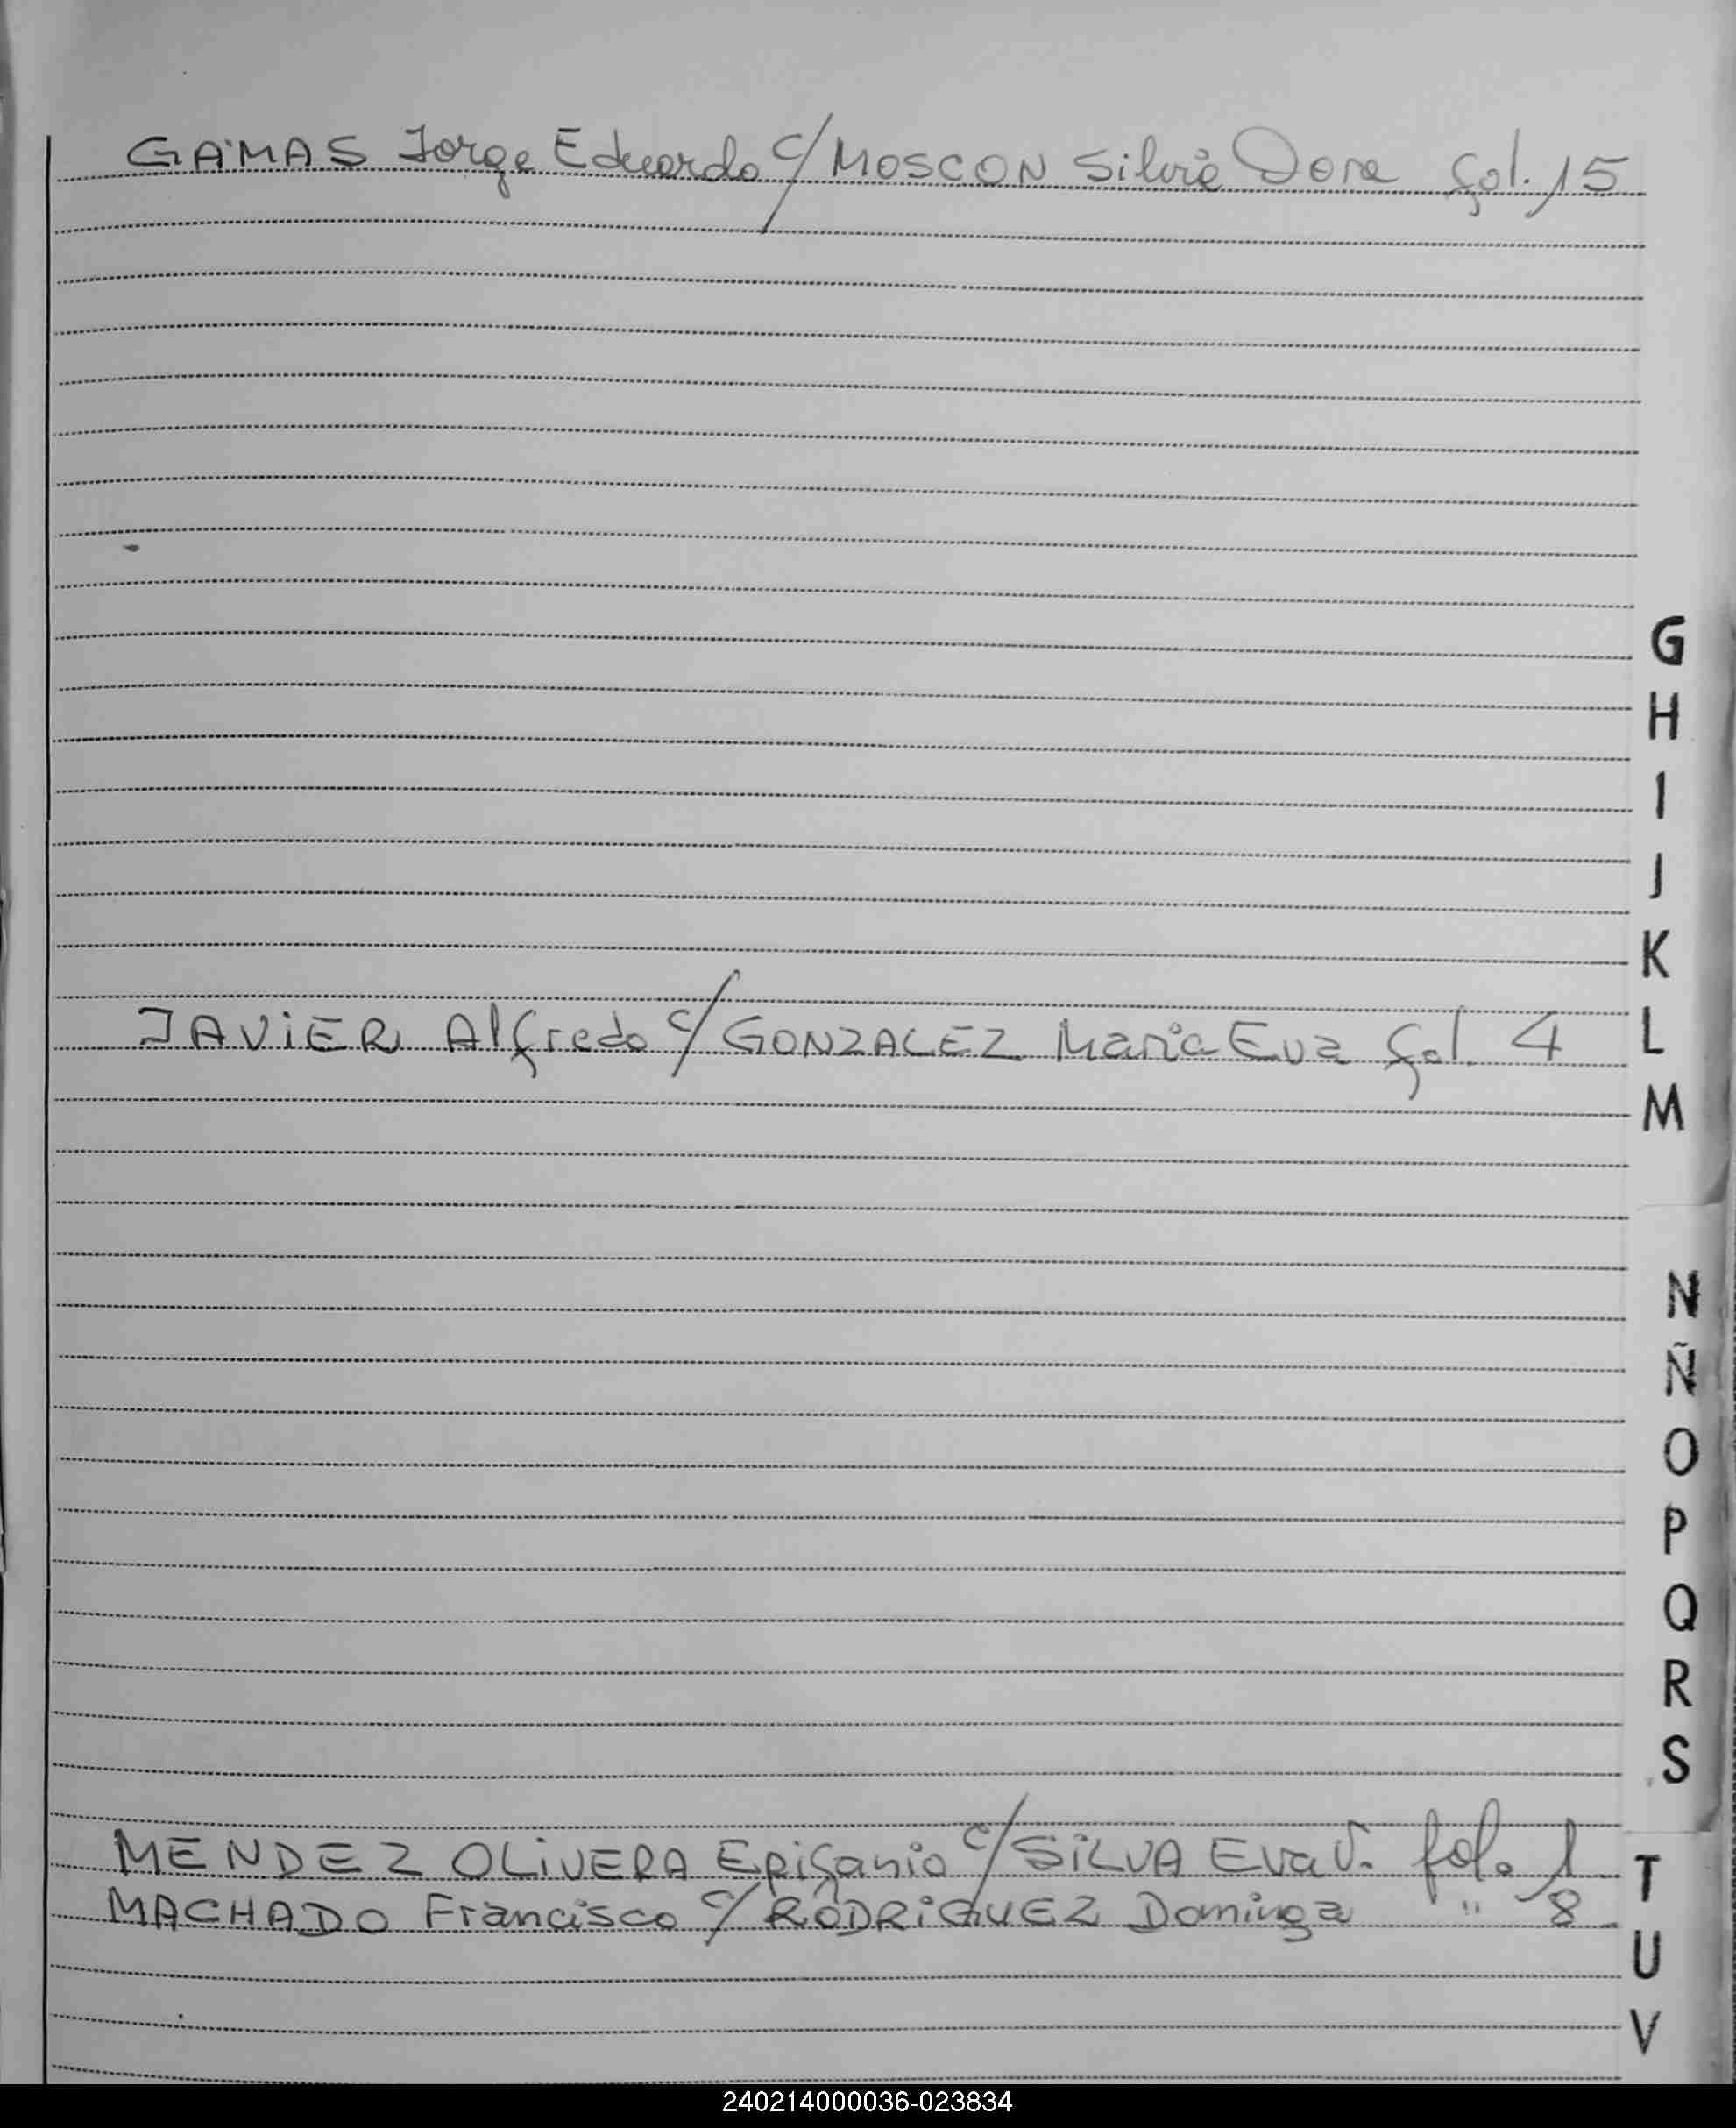 GAMAS Jorge Eduardo c/ MOSCON Silvia Dora fol. 15
G
H
I
J
K
JAVIER Alfredo c/ GONZALEZ Maria Eva fol. 4
L
M
N
Ñ
O
P
Q
R
S
MENDEZ OLIVERA Epifanio c/ SILVA Eva V. fol. 1
T
MACHADO Francisco c/ RODRIGUEZ Dominga " 8
U
V
240214000036-023834